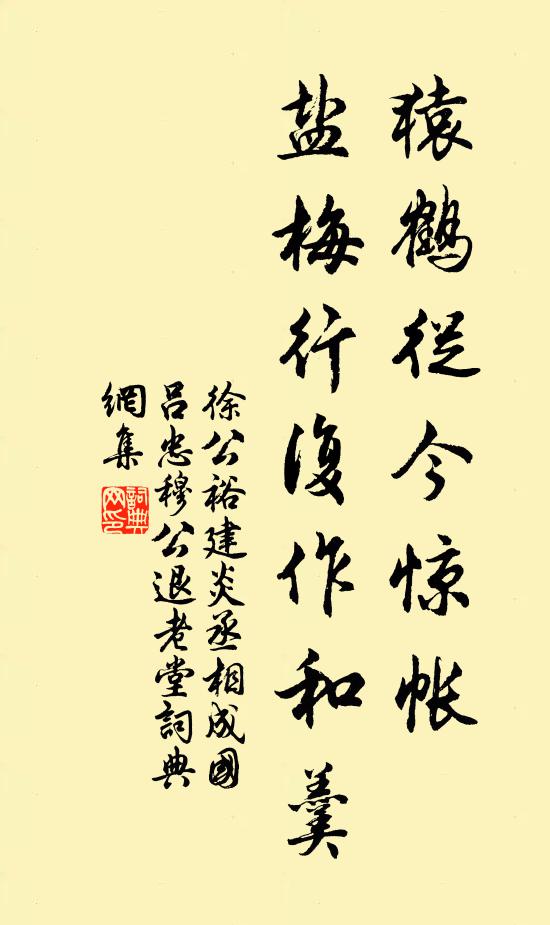 猿鶴從今惊帳
盐梅行復作和羹
徐公裕建炎丞相成國
吕忠穆公退老堂詞典
網集
詞典網印